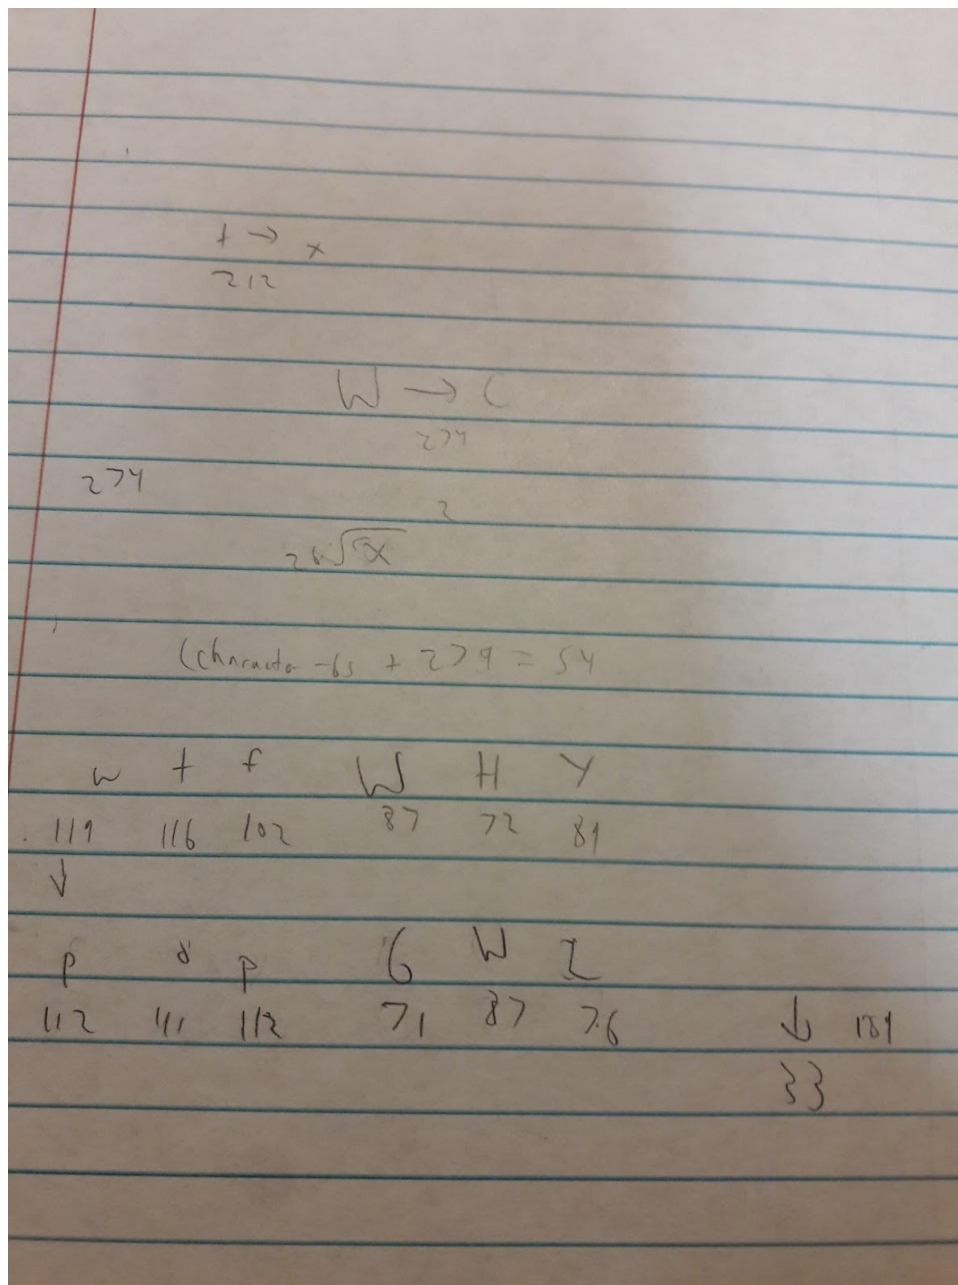 t → x
212
W → C
274
274
2
26√5x
(character -65 + 279 = 54
w t f W H Y
119 116 102 87 72 89
↓
p o p G W L
112 111 112 71 87 76 ↓ 189
33